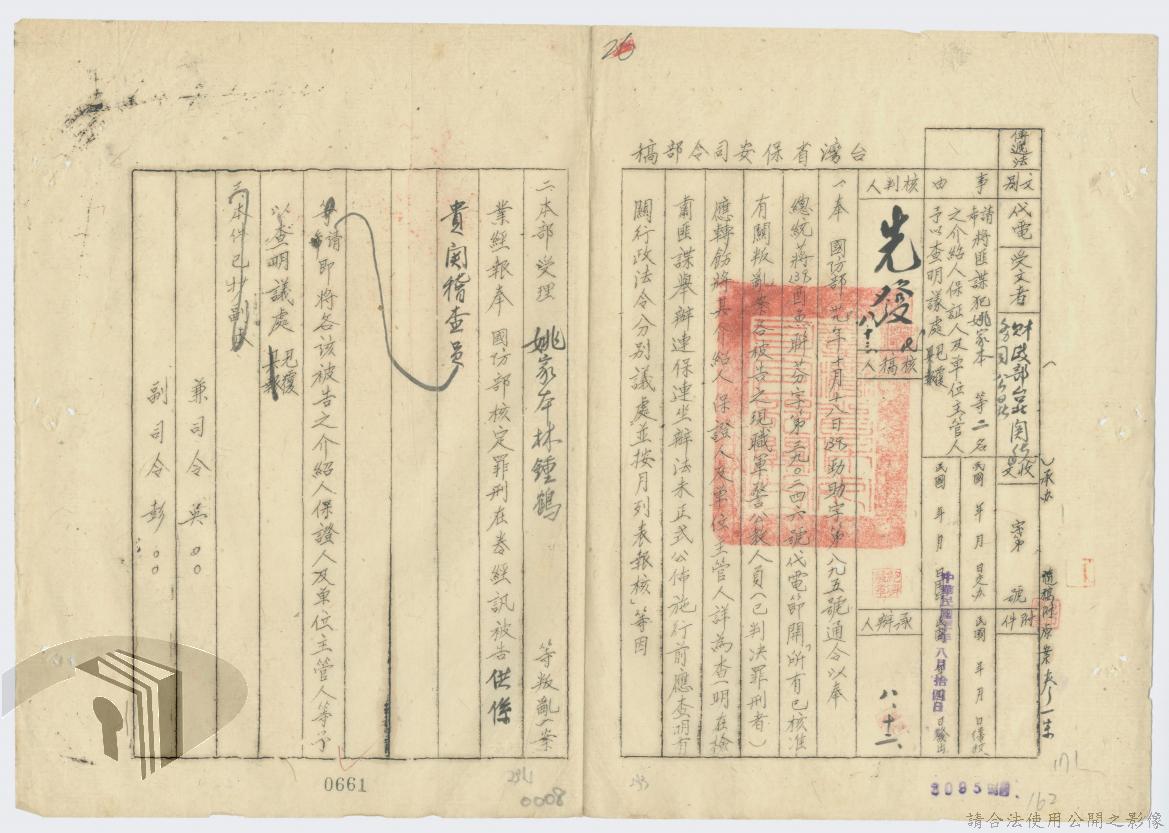 台灣省保安司令部稿
文別
代電
受文者
財政部台北関
附件
字第
號
事由
請將匪諜犯姚家本等二名
之介紹人保証人及單位主管人
予以查明議處見覆
核判人
先發
八十三
核稿人
承辦人
八、十二、
民國 年 月
民國 年 月
八月拾四日
隨稿附原案卷一宗
一、奉 國防部 年十月十八日 助助字第八九五號通令以奉
總統蔣 聯芬字第三九〇二四六號代電節開「所有已核准
有關叛亂案各被告之現職軍警公教人員(已判決罪刑者)
應轉飭將其介紹人保證人及單位主管人詳為查明在檢
肅匪諜舉辦連保連坐辦法未正式公佈施行前應查明有
關行政法令分別議處並按月列表報核」等因
二、本部受理 姚家本林鍾鶴 等叛亂一案
業經報奉 國防部核定罪刑在卷經訊被告供係
貴関稽查員
等請即 將各該被告之介紹人保證人及單位主管人等予
以查明議處見覆
三、本件已抄副本
兼司令 吳〇〇
副司令 彭〇〇
0661
0008
3095
162
請合法使用公開之影像